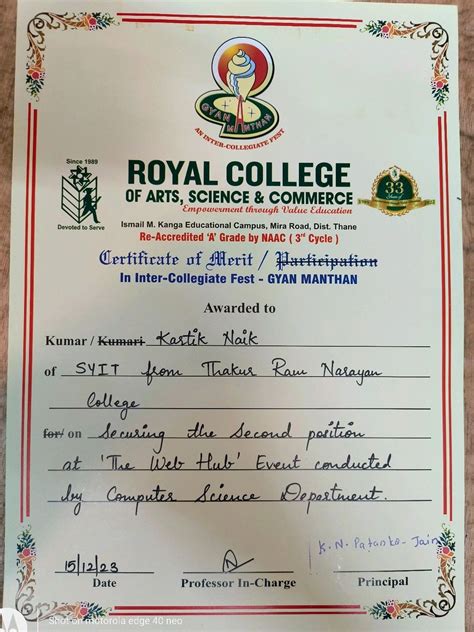 GYAN MANTHAN
AN INTER-COLLEGIATE FEST
Since 1989
Devoted to Serve
ROYAL COLLEGE
OF ARTS, SCIENCE & COMMERCE
Empowerment through Value Education
33
Ismail M. Kanga Educational Campus, Mira Road, Dist. Thane
Re-Accredited 'A' Grade by NAAC ( 3rd Cycle )
Certificate of Merit / Participation
In Inter-Collegiate Fest - GYAN MANTHAN
Awarded to
Kumar / Kumari Kartik Naik
of SYIT from Thakur Ram Narayan
College
for/ on Securing the Second position
at 'The Web Hub' Event conducted
by Computer Science Department.
15/12/23
Date
Professor In-Charge
Principal
Shot on motorola edge 40 neo